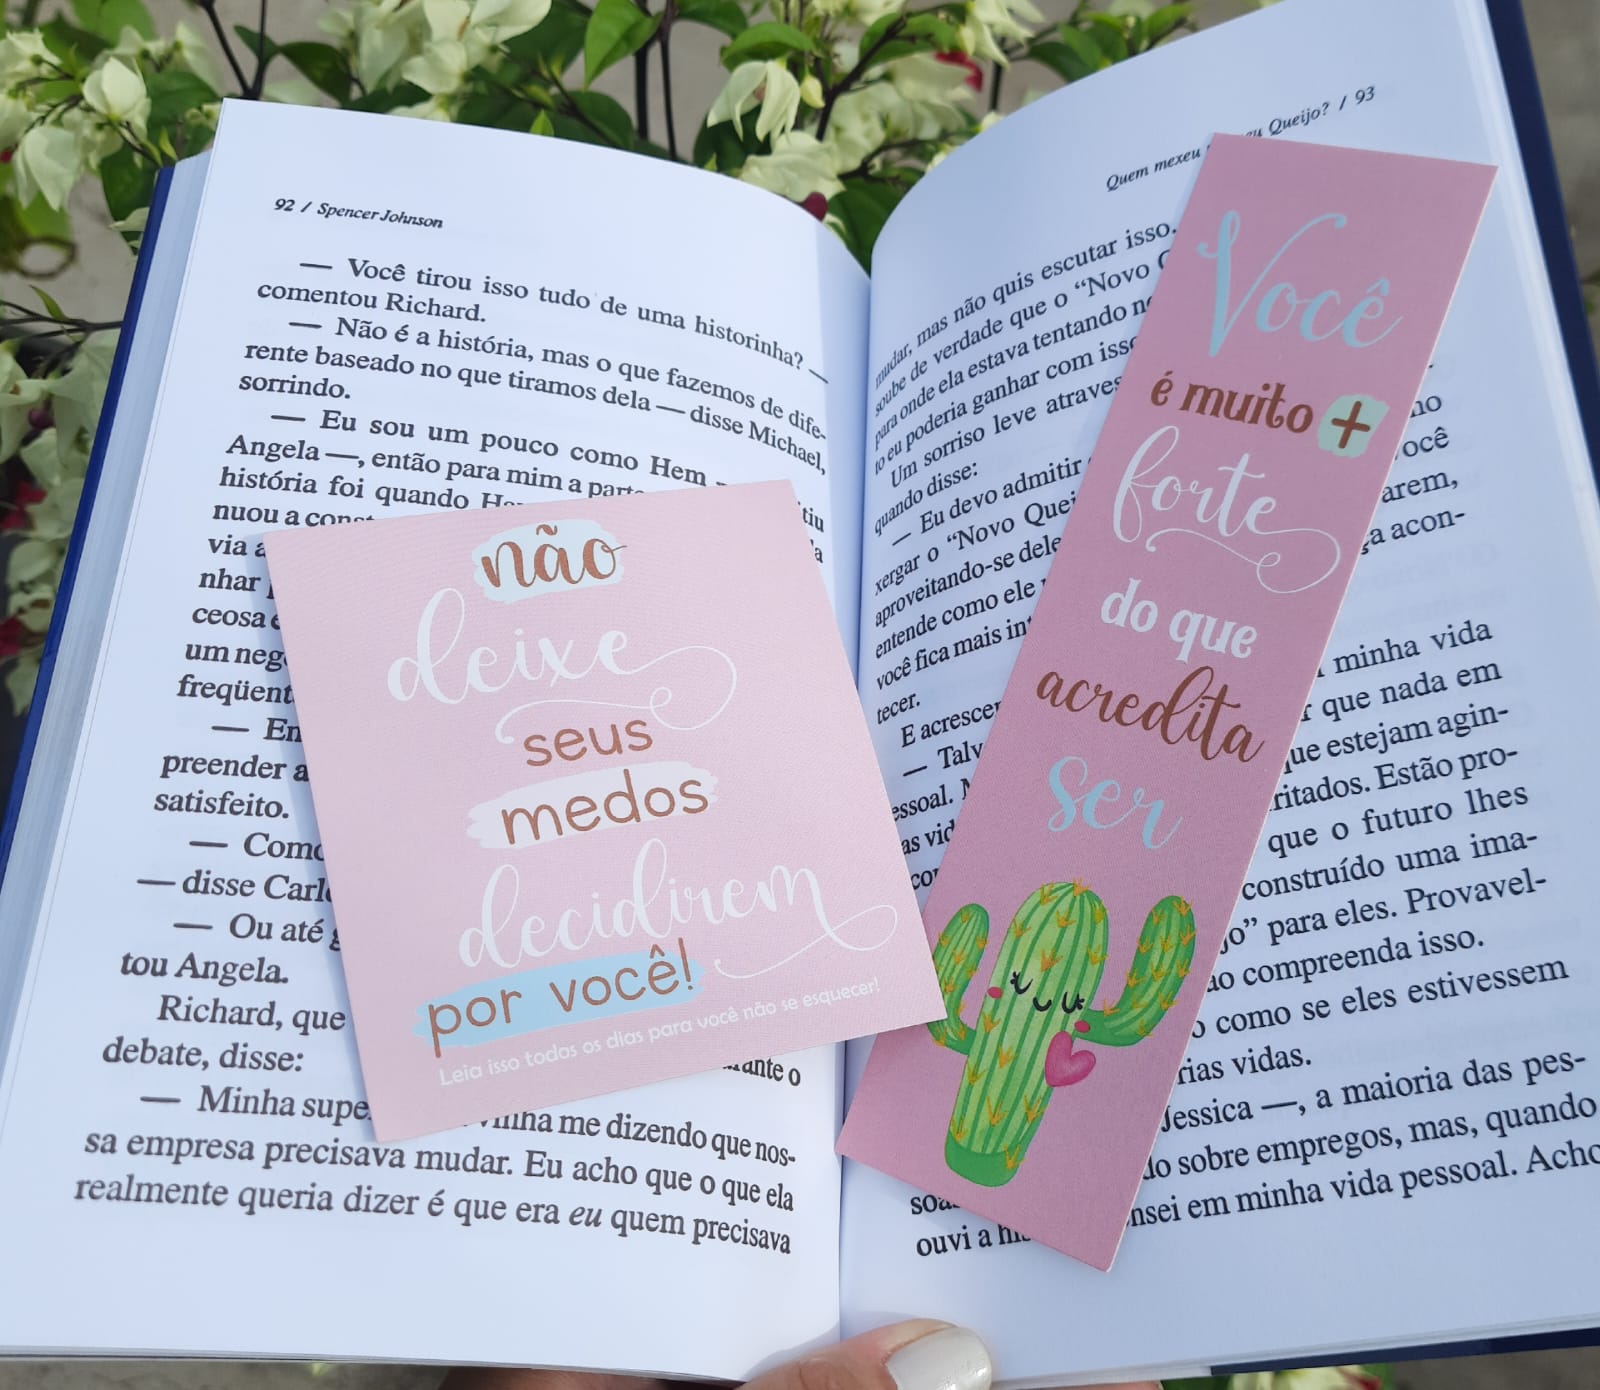 92 / Spencer Johnson
— Você tirou isso tudo de uma historinha? —
comentou Richard.
— Não é a história, mas o que fazemos de dife-
rente baseado no que tiramos dela — disse Michael,
sorrindo.
— Eu sou um pouco como Hem
Angela —, então para mim a parte
história foi quando
nuou a
via a
nhar
ceosa e
um
freqüent
— En
preender a
satisfeito.
— Como
— disse Carl
— Ou até
tou Angela.
Richard, que
debate, disse:
— Minha supe
nha me dizendo que nos-
sa empresa precisava mudar. Eu acho que o que ela
realmente queria dizer é que era eu quem precisava
Quem mexeu Queijo? / 93
mudar, mas não quis escutar isso.
soube de verdade que o “Novo
para onde ela estava tentando
to eu poderia ganhar com isso
Um sorriso leve
quando disse:
— Eu devo admitir
xergar o “Novo
aproveitando-se dele
entende como ele
você fica mais
tecer.
E
ocê
arem,
acon-
minha vida
que nada em
que estejam agin-
ritados. Estão pro-
que o futuro lhes
construído uma ima-
jo” para eles. Provavel-
ão compreenda isso.
como se eles estivessem
rias vidas.
Jessica —, a maioria das pes-
sobre empregos, mas, quando
nsei em minha vida pessoal. Acho
ouvi a
não
deixe
seus
medos
decidirem
por você!
Leia isso todos os dias para você não se esquecer!
Você
é muito +
forte
do que
acredita
ser